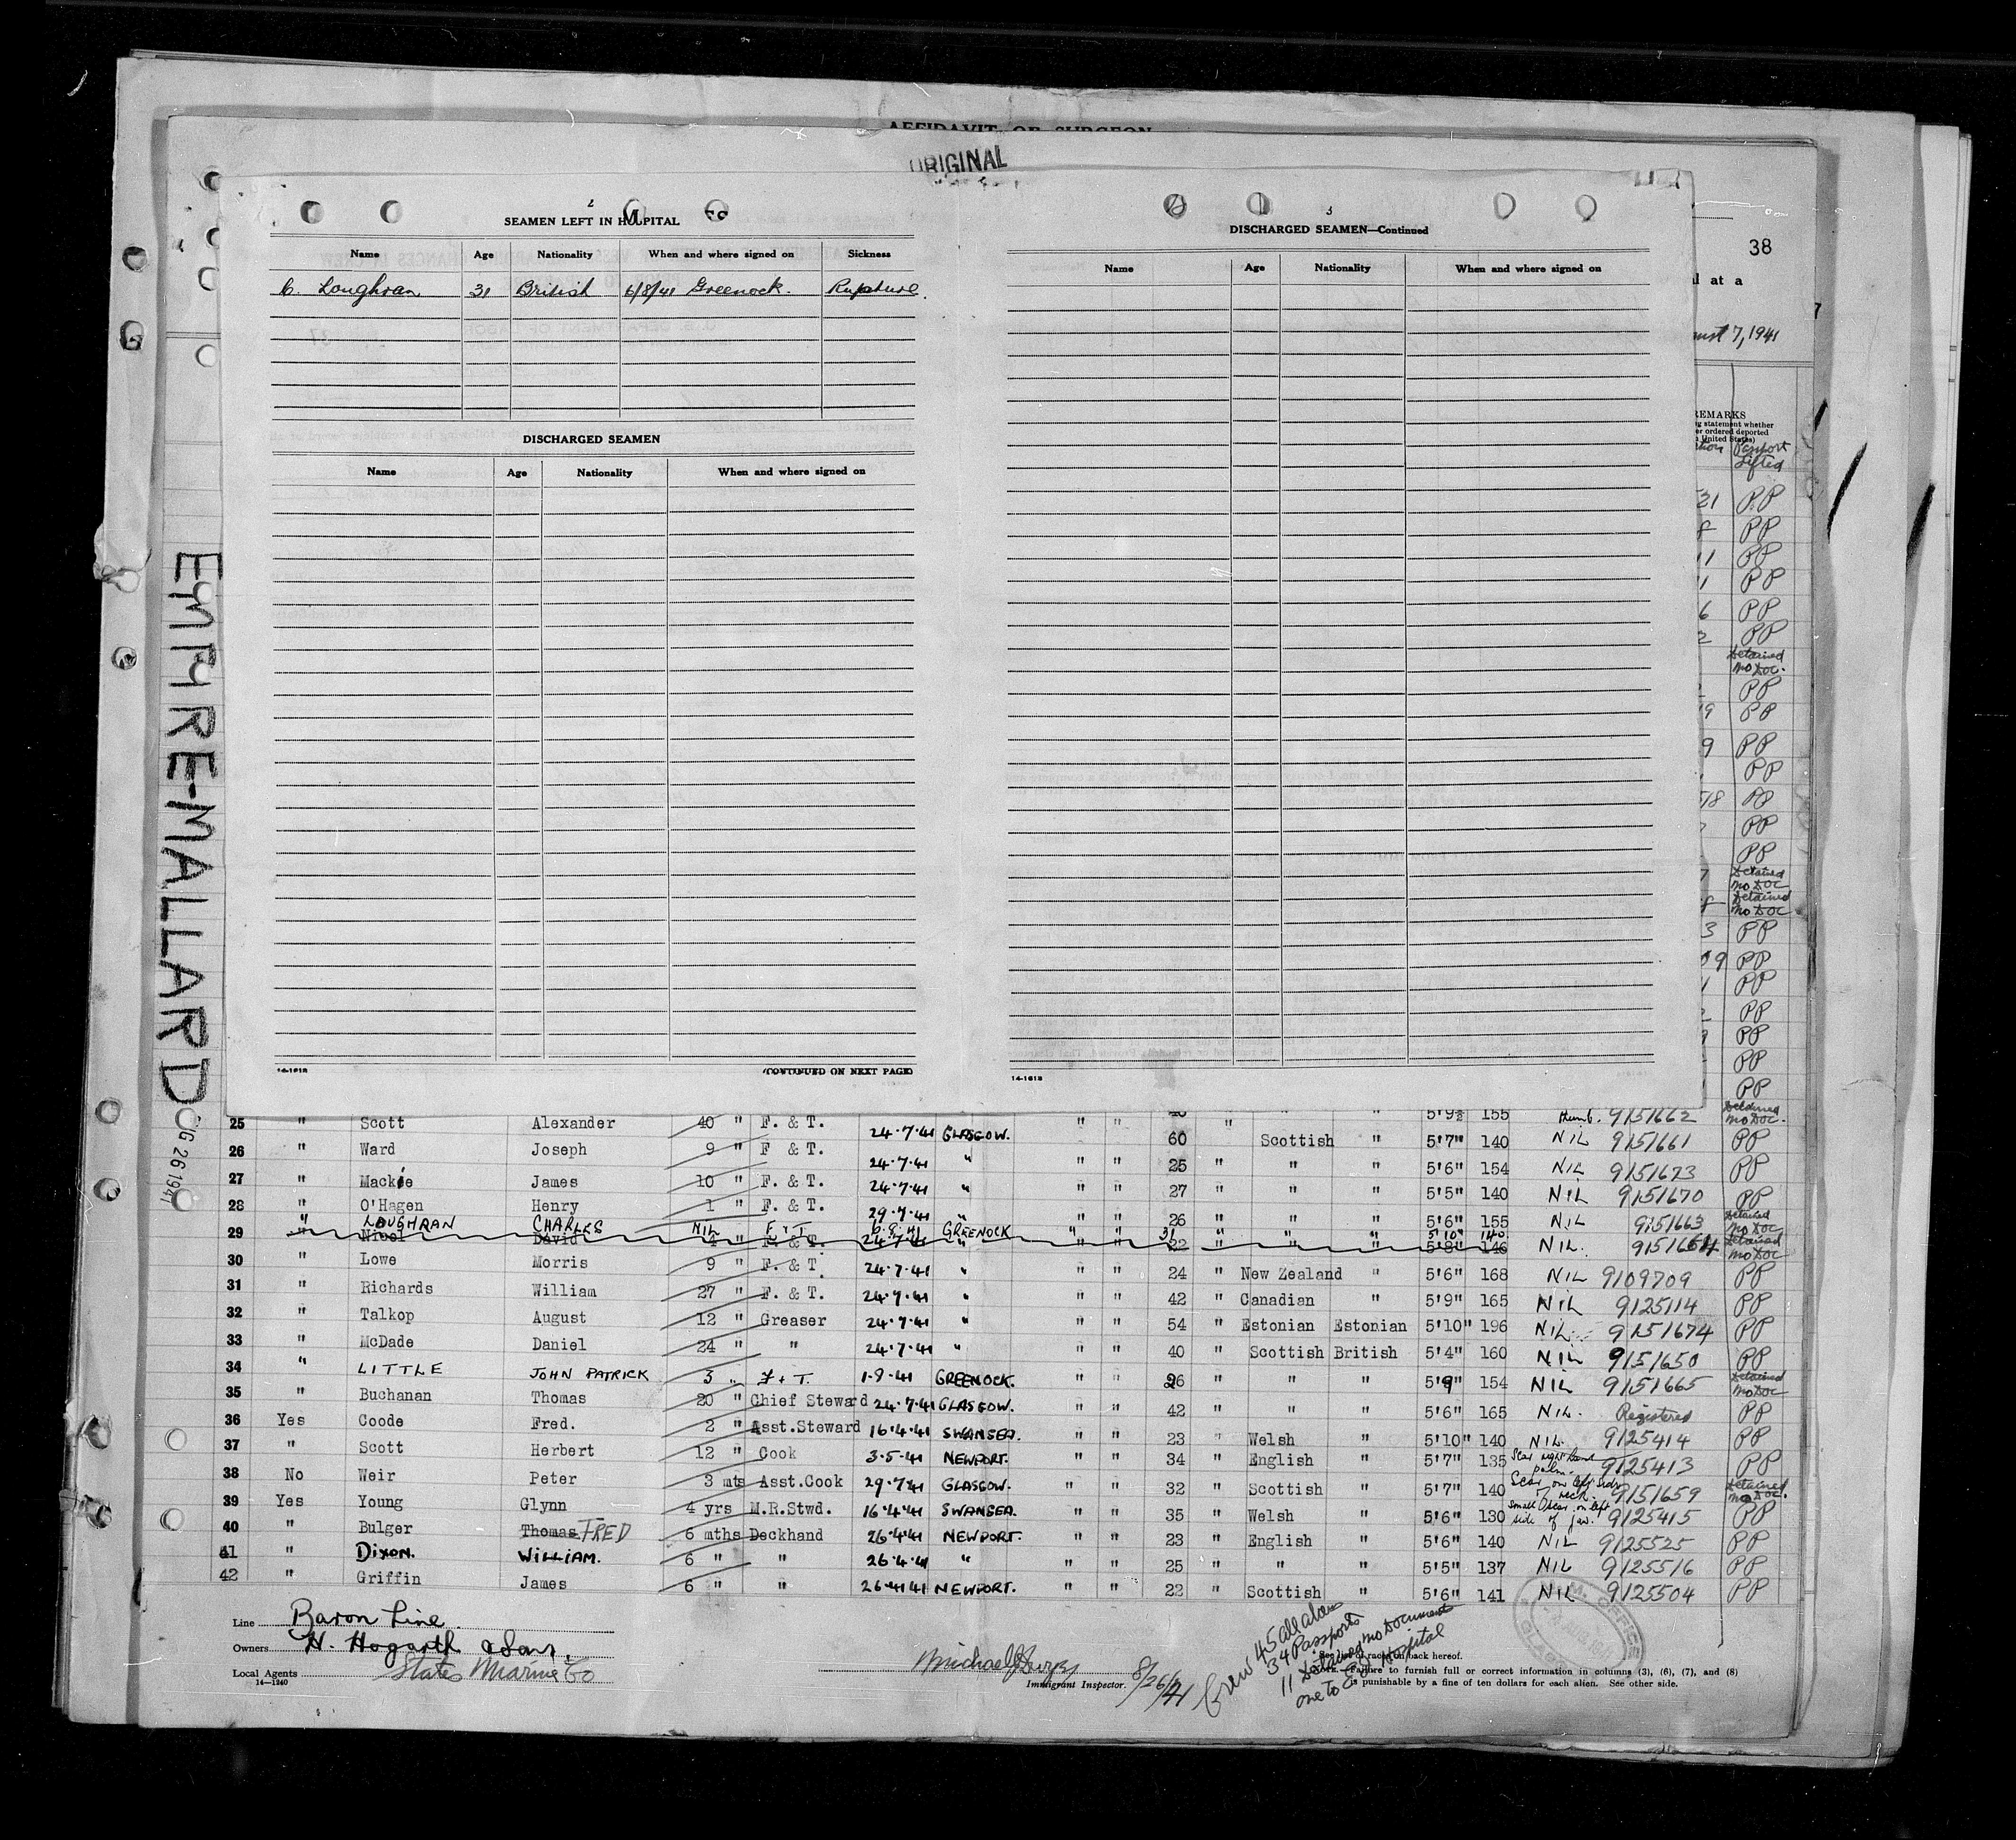 AFFIDAVIT OF SURGEON
ORIGINAL
2
SEAMEN LEFT IN HOSPITAL
Name Age Nationality When and where signed on Sickness
C. Loughran 31 British 6/8/41 Greenock. Rupture.
DISCHARGED SEAMEN
Name Age Nationality When and where signed on
14-1618
(CONTINUED ON NEXT PAGE)
3
DISCHARGED SEAMEN—Continued
Name Age Nationality When and where signed on
14-1618
38
l at a
7, 1941
REMARKS
statement whether
or ordered deported
United States)
Passport
Lifted
21 PP
8 PP
11 PP
1 PP
6 PP
2 PP
Detained
No Doc.
PP
9 PP
9 PP
PP
58 PP
PP
PP
7 Detained
No Doc
8 Detained
No Doc
3 PP
09 PP
1 PP
2 PP
9 PP
PP
PP
EMPIRE-MALLARD
G 26 1941
25 " Scott Alexander 40 " F. & T. 24.7.41 GLASGOW. " " 40 " " " 5'9½ 155 9151662 Detained No Doc.
26 " Ward Joseph 9 " F & T. 24.7.41 " " " 60 Scottish " 5'7" 140 NIL 9151661 PP
27 " Mackie James 10 " F. & T. 24.7.41 " " " 25 " " " 5'6" 154 NIL 9151673 PP
28 " O'Hagen Henry 1 " F. & T. 29.7.41 " " " 27 " " " 5'5" 140 NIL 9151670 PP
" LOUGHRAN CHARLES NIL F & T 6.8.41 GREENOCK " " 31 " " " 5'10" 140
29 " Nicol David 4 " F. & T. 24.7.41 " " " 26 " " " 5'6" 155 NIL 9151663 Detained No Doc
22 " " " 5'8" 146 NIL. 9151664 Detained No Doc
30 " Lowe Morris 9 " F. & T. 24.7.41 " " " 24 " New Zealand " 5'6" 168 NIL 9109709 PP
31 " Richards William 27 " F. & T. 24.7.41 " " " 42 " Canadian " 5'9" 165 NIL 9125114 PP
32 " Talkop August 12 " Greaser 24.7.41 " " " 54 " Estonian Estonian 5'10" 196 NIL 9151674 PP
33 " McDade Daniel 24 " " 24.7.41 " " " 40 " Scottish British 5'4" 160 NIL 9151650 PP
34 " LITTLE JOHN PATRICK 3 " F + T. 1.8.41 GREENOCK. " " 26 " " " 5'9" 154 NIL 9151665 Detained No Doc
35 " Buchanan Thomas 20 " Chief Steward 24.7.41 GLASGOW. " " 42 " " " 5'6" 165 NIL. Registered PP
36 Yes Coode Fred. 2 " Asst.Steward 16.4.41 SWANSEA. " " 23 " Welsh " 5'10" 140 NIL. 9125414 PP
37 " Scott Herbert 12 " Cook 3.5.41 NEWPORT. " " 34 " English " 5'7" 135 Scar right hand palm. 9125413 PP
38 No Weir Peter 3 mts Asst.Cook 29.7.41 GLASGOW. " " 32 " Scottish " 5'7" 140 Scar on left side of neck. 9151659 Detained No Doc.
39 Yes Young Glynn 4 yrs M.R.Stwd. 16.4.41 SWANSEA. " " 35 " Welsh " 5'6" 130 Small scar on left side of jaw. 9125415 PP
40 " Bulger Thomas FRED 6 mths Deckhand 26.4.41 NEWPORT. " " 23 " English " 5'6" 140 NIL 9125525 PP
41 " DIXON. WILLIAM. 6 " " 26.4.41 " " " 25 " " " 5'5" 137 NIL 9125516 PP
42 " Griffin James 6 " " 26.4.41 NEWPORT. " " 22 " Scottish " 5'6" 141 NIL 9125504 PP
Line Baron Line
Owners H. Hogarth & Sons.
Local Agents States Marine Co
14—1240
Immigrant Inspector. 8/26/41
Crew 45 all aliens
34 Passports
11 Detained No Documents
one to Hospital
races on back hereof.
Failure to furnish full or correct information in columns (3), (6), (7), and (8)
is punishable by a fine of ten dollars for each alien. See other side.